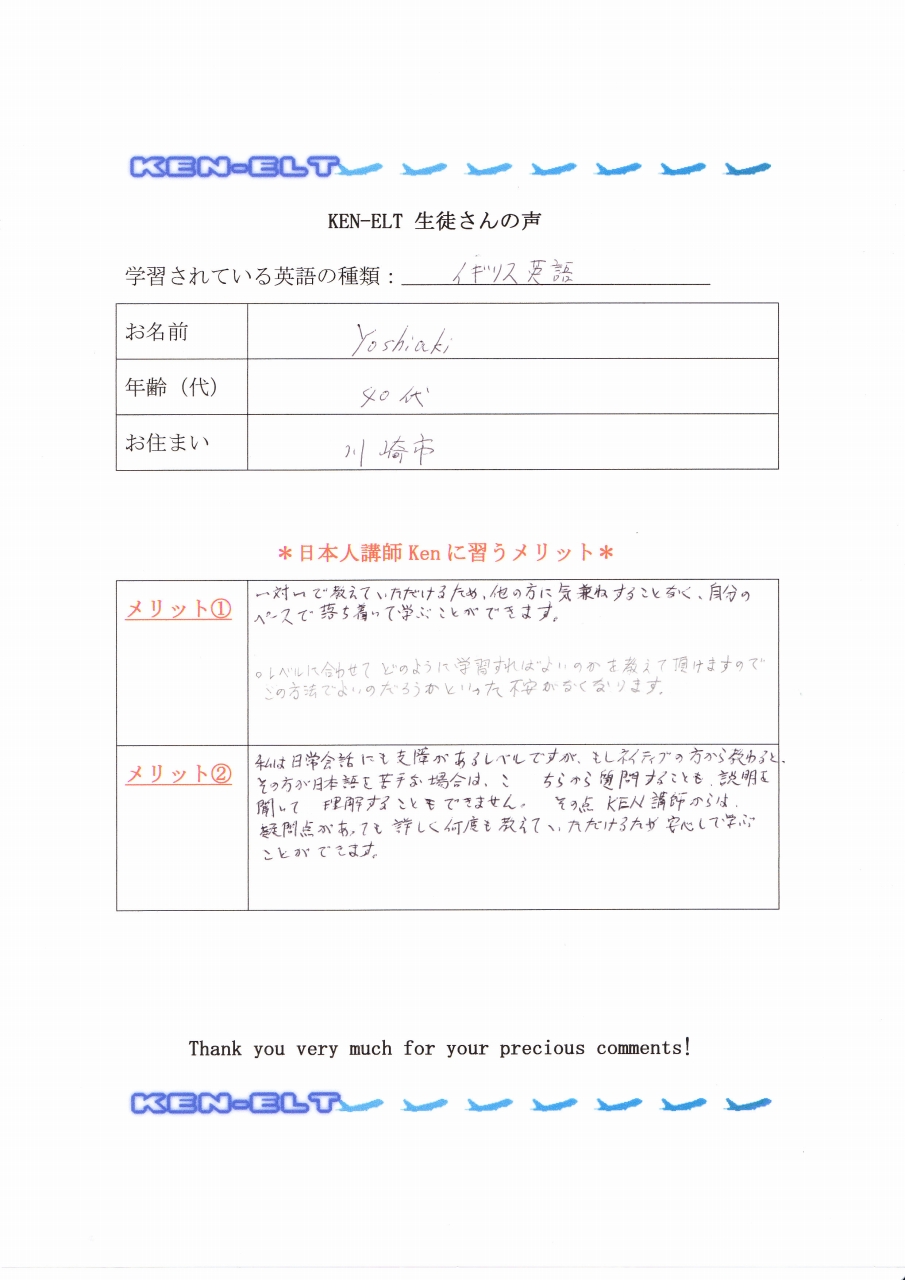 KEN-ELT
KEN-ELT 生徒さんの声
学習されている英語の種類： イギリス英語
お名前 Yoshiaki
年齢（代） 40代
お住まい 川崎市
＊日本人講師 Ken に習うメリット＊
メリット①
一対一で教えていただけるため、他の方に気兼ねすることなく、自分の
ペースで落ち着いて学ぶことができます。
○レベルに合わせてどのように学習すればよいのかを教えて頂けますので
この方法でよいのだろうかといった不安がなくなります。
メリット②
私は日常会話にも支障があるレベルですが、もしネイティブの方から教わると、
その方が日本語を苦手な場合は、こ ちらから質問することも、説明を
聞いて 理解することもできません。 その点 KEN講師からは、
疑問点があっても詳しく何度も教えていただけるため安心して学ぶ
ことができます。
Thank you very much for your precious comments!
KEN-ELT